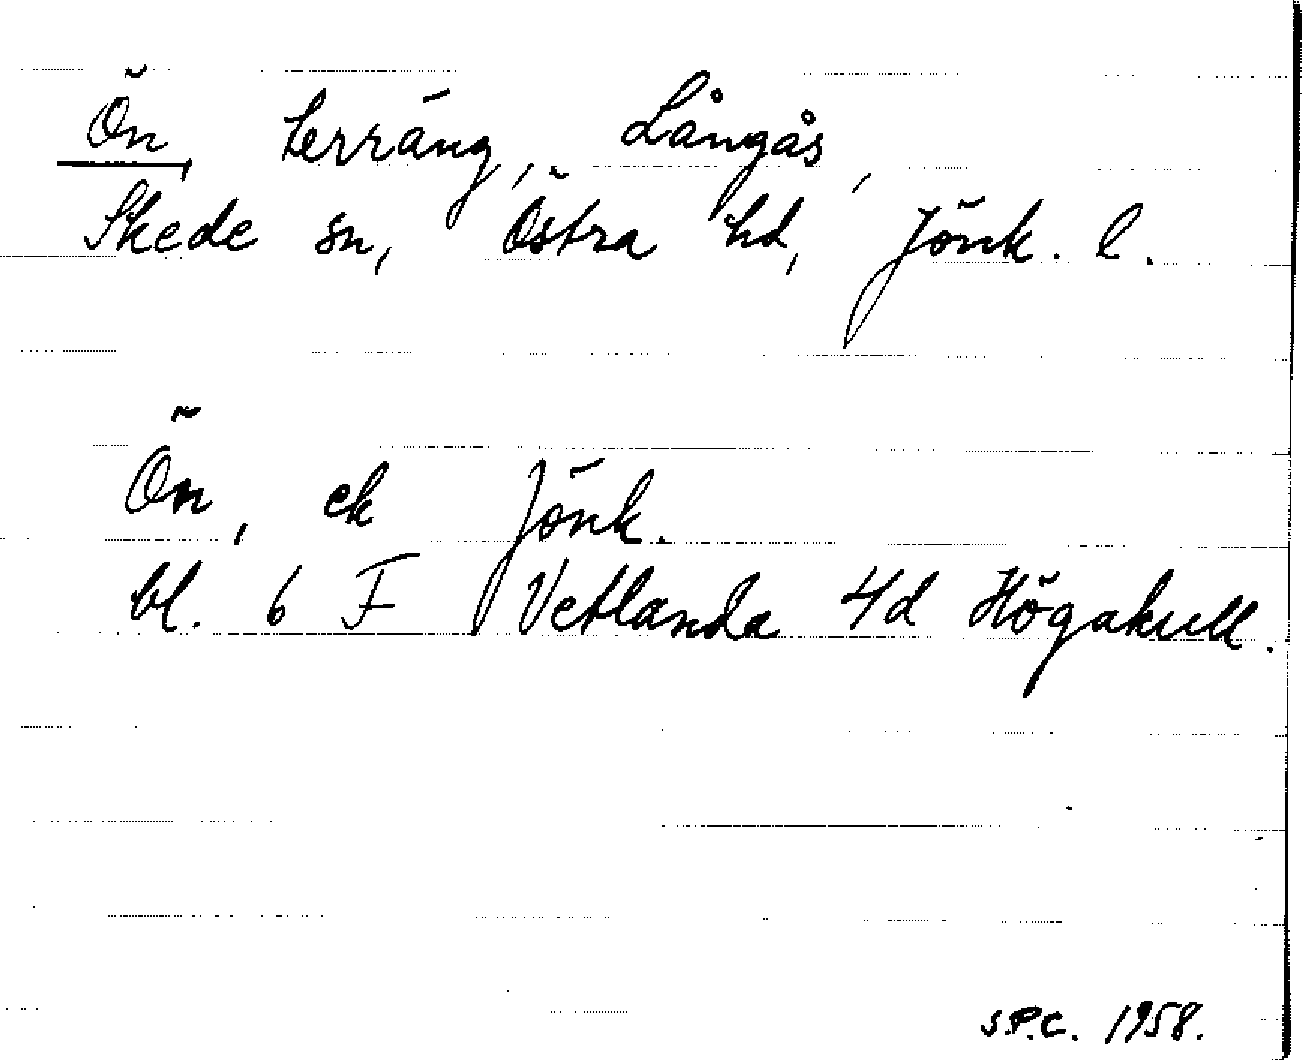 Ön, terräng, Långås,
Skede sn, Östra hd, Jönk. l.
Ön, ek Jönk.
bl. 6 F Vetlanda 4d Högakull.
S.P.C. 1958.